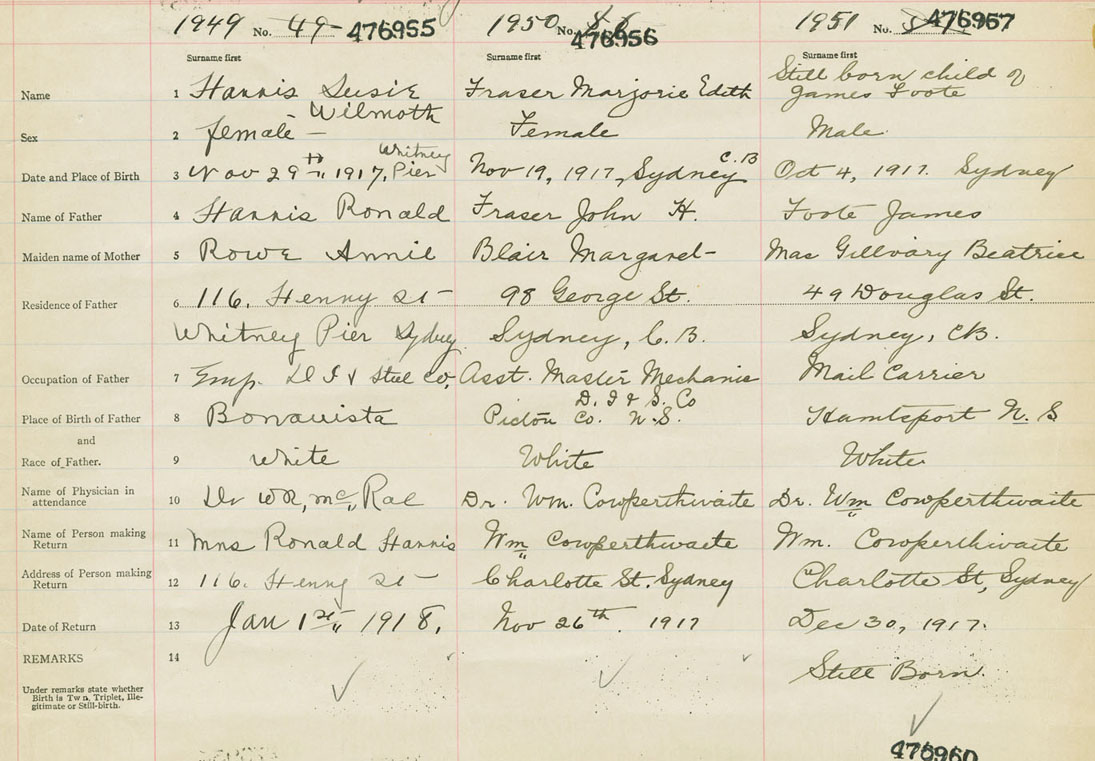 1949 No. 49 476955 1950 No. 476956 1951 No. 476957
Surname first Surname first Surname first
Name 1 Harris Susie Wilmoth Fraser Marjorie Edith Still born child of James Foote
Sex 2 female Female Male
Date and Place of Birth 3 Nov 29th, 1917, Whitney Pier Nov 19, 1917, Sydney C.B Oct 4, 1917. Sydney
Name of Father 4 Harris Ronald Fraser John H. Foote James
Maiden name of Mother 5 Rowe Annie Blair Margaret Mac Gillvary Beatrice
Residence of Father 6 116. Henry St 98 George St. 49 Douglas St.
Whitney Pier Sydney Sydney, C.B. Sydney, CB.
Occupation of Father 7 Emp. D I & Steel Co, Asst. Master Mechanic Mail Carrier
D. I & S. Co
Place of Birth of Father 8 Bonavista Pictou Co. N.S. Hantsport N.S
and
Race of Father. 9 White White White
Name of Physician in attendance 10 Dr W R, Mc Rae Dr. Wm. Cowperthwaite Dr. Wm Cowperthwaite
Name of Person making Return 11 Mrs Ronald Harris Wm Cowperthwaite Wm. Cowperthwaite
Address of Person making Return 12 116. Henry St Charlotte St. Sydney Charlotte St, Sydney
Date of Return 13 Jan 1st, 1918, Nov 26th. 1917 Dec 30, 1917.
REMARKS 14 Still Born.
Under remarks state whether
Birth is Twn, Triplet, Ille-
gitimate or Still-birth.
476960